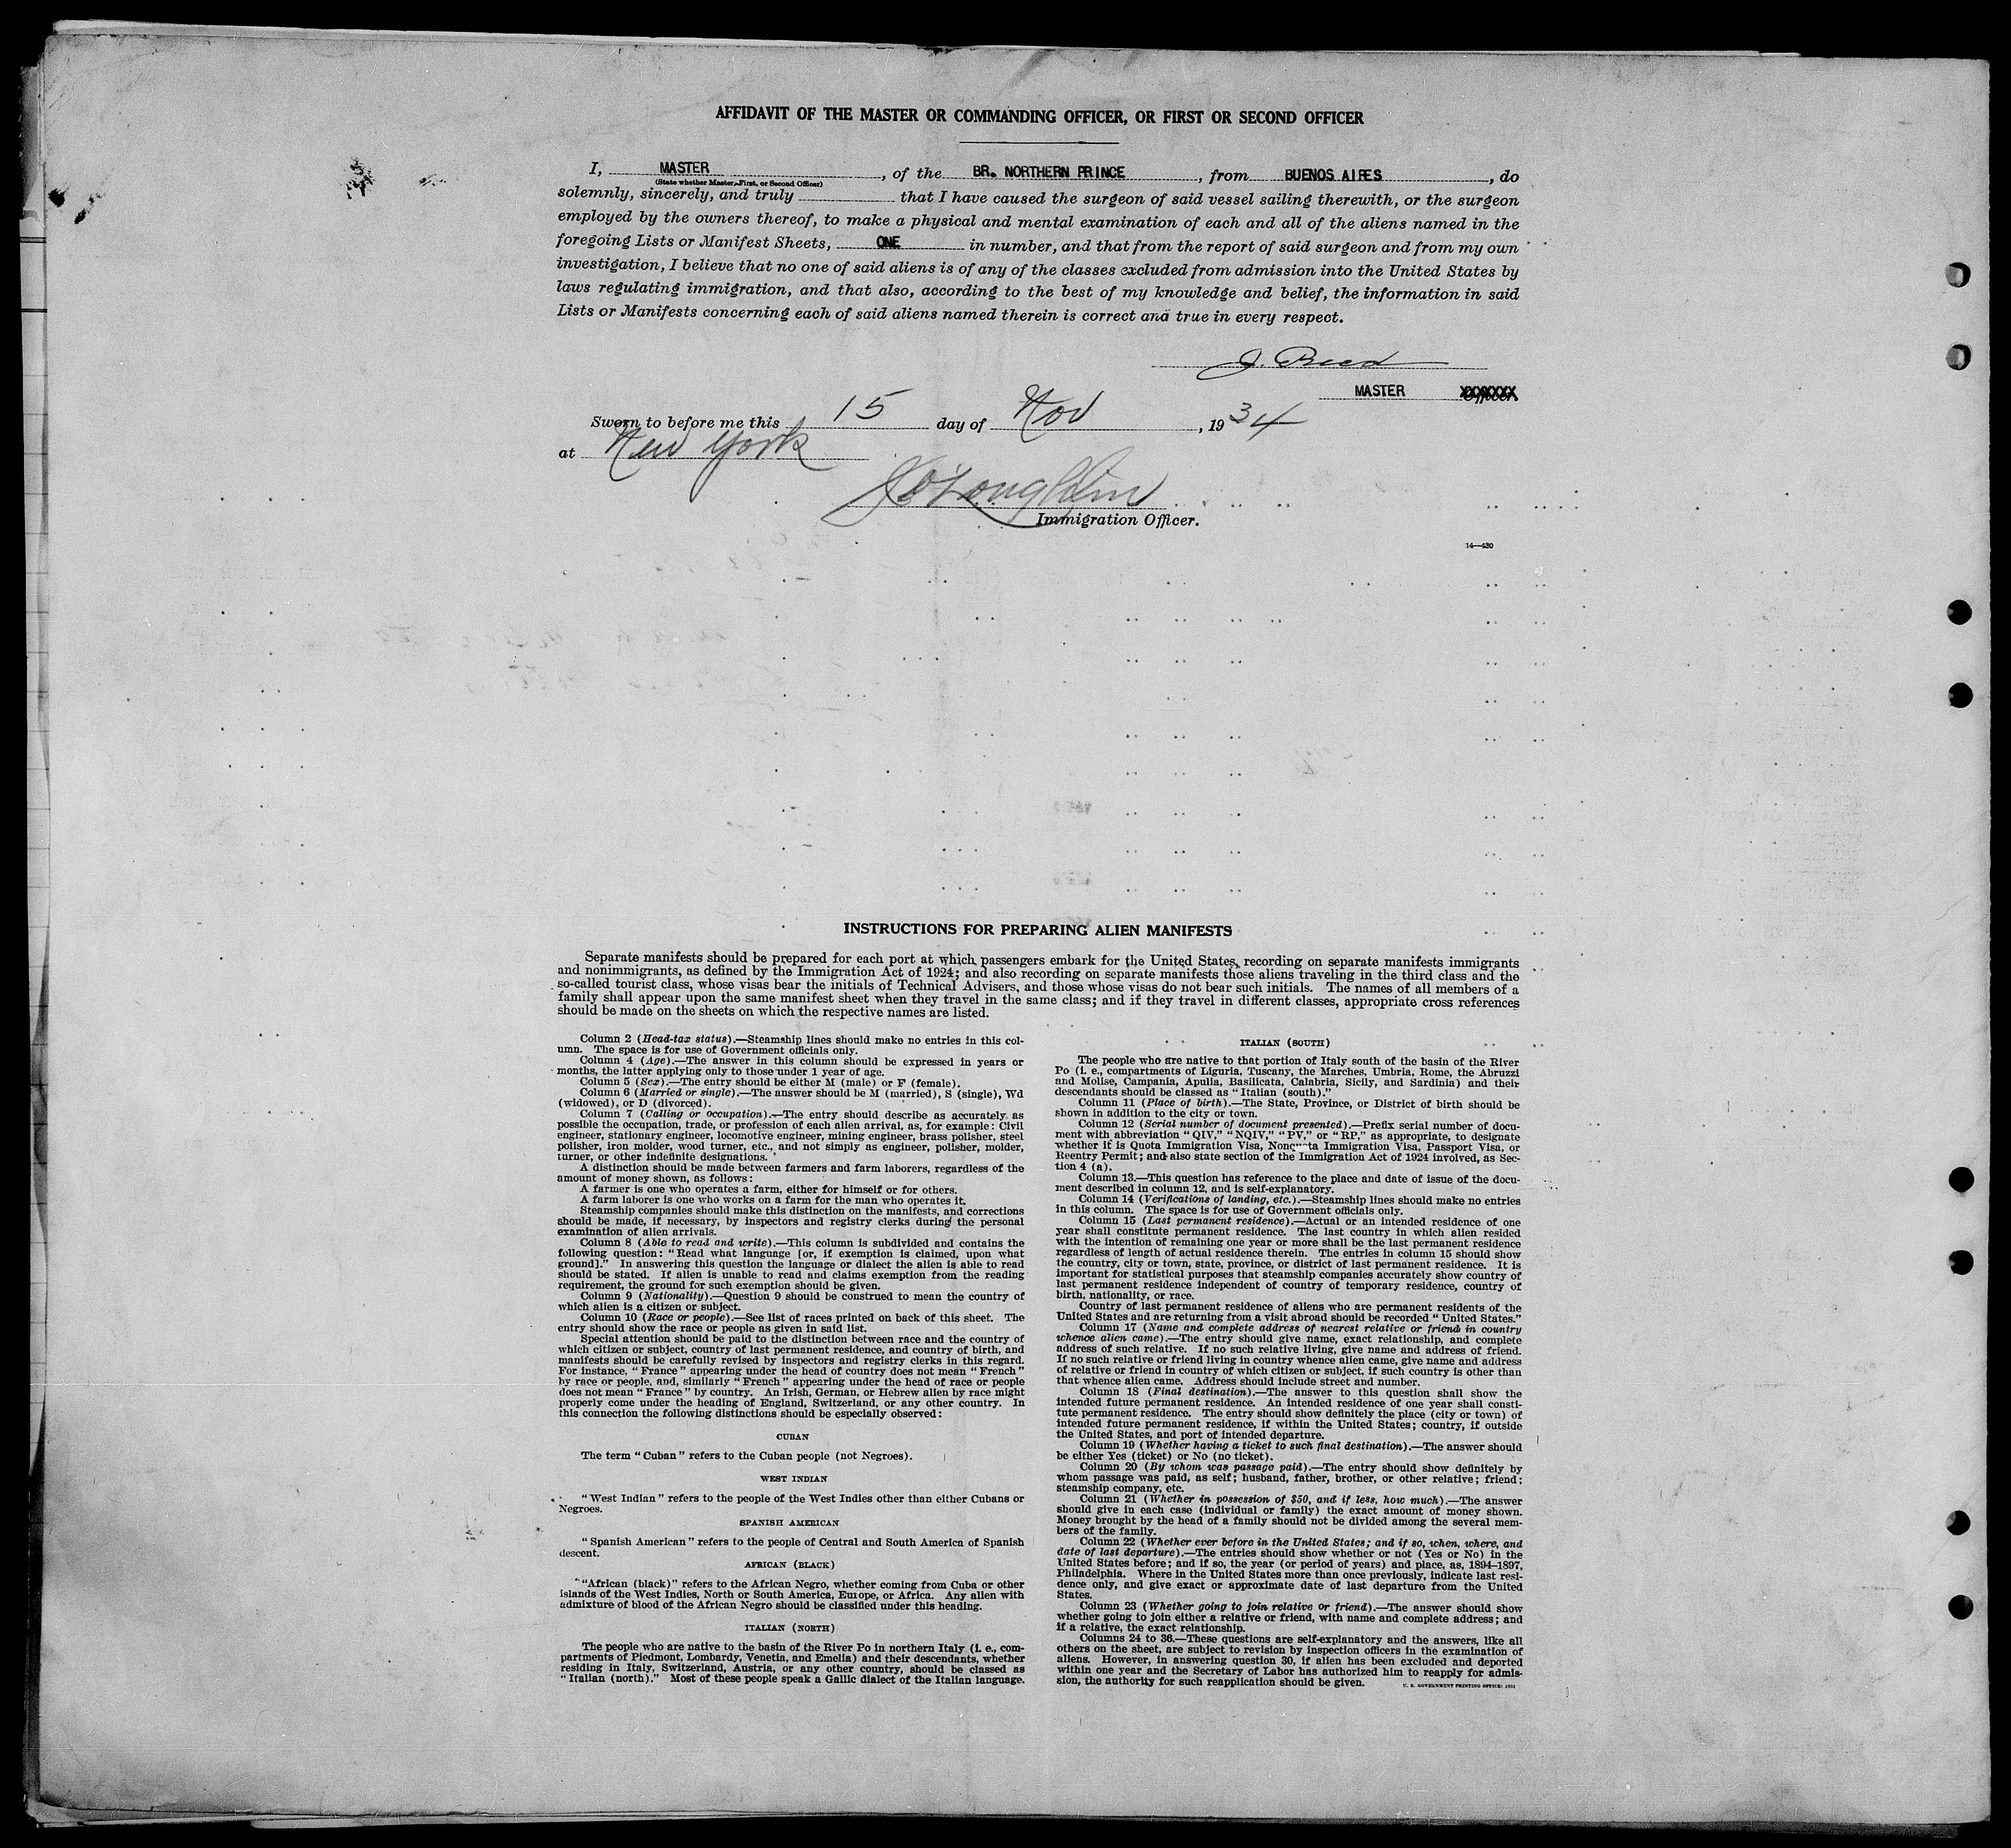 AFFIDAVIT OF THE MASTER OR COMMANDING OFFICER, OR FIRST OR SECOND OFFICER
I, MASTER, of the BR. NORTHERN PRINCE, from BUENOS AIRES, do
(State whether Master, First, or Second Officer)
solemnly, sincerely, and truly that I have caused the surgeon of said vessel sailing therewith, or the surgeon
employed by the owners thereof, to make a physical and mental examination of each and all of the aliens named in the
foregoing Lists or Manifest Sheets, ONE in number, and that from the report of said surgeon and from my own
investigation, I believe that no one of said aliens is of any of the classes excluded from admission into the United States by
laws regulating immigration, and that also, according to the best of my knowledge and belief, the information in said
Lists or Manifests concerning each of said aliens named therein is correct and true in every respect.
MASTER
Sworn to before me this 15 day of Nov, 1934
at New York
Immigration Officer.
INSTRUCTIONS FOR PREPARING ALIEN MANIFESTS
Separate manifests should be prepared for each port at which passengers embark for the United States, recording on separate manifests immigrants
and nonimmigrants, as defined by the Immigration Act of 1924; and also recording on separate manifests those aliens traveling in the third class and the
so-called tourist class, whose visas bear the initials of Technical Advisers, and those whose visas do not bear such initials. The names of all members of a
family shall appear upon the same manifest sheet when they travel in the same class; and if they travel in different classes, appropriate cross references
should be made on the sheets on which the respective names are listed.
Column 2 (Head-tax status).—Steamship lines should make no entries in this col-
umn. The space is for use of Government officials only.
Column 4 (Age).—The answer in this column should be expressed in years or
months, the latter applying only to those under 1 year of age.
Column 5 (Sex).—The entry should be either M (male) or F (female).
Column 6 (Married or single).—The answer should be M (married), S (single), Wd
(widowed), or D (divorced).
Column 7 (Calling or occupation).—The entry should describe as accurately as
possible the occupation, trade, or profession of each alien arrival, as, for example: Civil
engineer, stationary engineer, locomotive engineer, mining engineer, brass polisher, steel
polisher, iron molder, wood turner, etc., and not simply as engineer, polisher, molder,
turner, or other indefinite designations.
A distinction should be made between farmers and farm laborers, regardless of the
amount of money shown, as follows:
A farmer is one who operates a farm, either for himself or for others.
A farm laborer is one who works on a farm for the man who operates it.
Steamship companies should make this distinction on the manifests, and corrections
should be made, if necessary, by inspectors and registry clerks during the personal
examination of alien arrivals.
Column 8 (Able to read and write).—This column is subdivided and contains the
following question: "Read what language [or, if exemption is claimed, upon what
ground]." In answering this question the language or dialect the alien is able to read
should be stated. If alien is unable to read and claims exemption from the reading
requirement, the ground for such exemption should be given.
Column 9 (Nationality).—Question 9 should be construed to mean the country of
which alien is a citizen or subject.
Column 10 (Race or people).—See list of races printed on back of this sheet. The
entry should show the race or people as given in said list.
Special attention should be paid to the distinction between race and the country of
which citizen or subject, country of last permanent residence, and country of birth, and
manifests should be carefully revised by inspectors and registry clerks in this regard.
For instance, "France" appearing under the head of country does not mean "French"
by race or people, and, similarly "French" appearing under the head of race or people
does not mean "France" by country. An Irish, German, or Hebrew alien by race might
properly come under the heading of England, Switzerland, or any other country. In
this connection the following distinctions should be especially observed:
CUBAN
The term "Cuban" refers to the Cuban people (not Negroes).
WEST INDIAN
"West Indian" refers to the people of the West Indies other than either Cubans or
Negroes.
SPANISH AMERICAN
"Spanish American" refers to the people of Central and South America of Spanish
descent.
AFRICAN (BLACK)
"African (black)" refers to the African Negro, whether coming from Cuba or other
islands of the West Indies, North or South America, Europe, or Africa. Any alien with
admixture of blood of the African Negro should be classified under this heading.
ITALIAN (NORTH)
The people who are native to the basin of the River Po in northern Italy (i. e., com-
partments of Piedmont, Lombardy, Venetia, and Emelia) and their descendants, whether
residing in Italy, Switzerland, Austria, or any other country, should be classed as
"Italian (north)." Most of these people speak a Gallic dialect of the Italian language.
ITALIAN (SOUTH)
The people who are native to that portion of Italy south of the basin of the River
Po (i. e., compartments of Liguria, Tuscany, the Marches, Umbria, Rome, the Abruzzi
and Molise, Campania, Apulia, Basilicata, Calabria, Sicily, and Sardinia) and their
descendants should be classed as "Italian (south)."
Column 11 (Place of birth).—The State, Province, or District of birth should be
shown in addition to the city or town.
Column 12 (Serial number of document presented).—Prefix serial number of docu-
ment with abbreviation "QIV," "NQIV," "PV," or "RP," as appropriate, to designate
whether it is Quota Immigration Visa, Nonquota Immigration Visa, Passport Visa, or
Reentry Permit; and also state section of the Immigration Act of 1924 involved, as Sec-
tion 4 (a).
Column 13.—This question has reference to the place and date of issue of the docu-
ment described in column 12, and is self-explanatory.
Column 14 (Verifications of landing, etc.).—Steamship lines should make no entries
in this column. The space is for use of Government officials only.
Column 15 (Last permanent residence).—Actual or an intended residence of one
year shall constitute permanent residence. The last country in which alien resided
with the intention of remaining one year or more shall be the last permanent residence
regardless of length of actual residence therein. The entries in column 15 should show
the country, city or town, state, province, or district of last permanent residence. It is
important for statistical purposes that steamship companies accurately show country of
last permanent residence independent of country of temporary residence, country of
birth, nationality, or race.
Country of last permanent residence of aliens who are permanent residents of the
United States and are returning from a visit abroad should be recorded "United States."
Column 17 (Name and complete address of nearest relative or friend in country
whence alien came).—The entry should give name, exact relationship, and complete
address of such relative. If no such relative living, give name and address of friend.
If no such relative or friend living in country whence alien came, give name and address
of relative or friend in country of which citizen or subject, if such country is other than
that whence alien came. Address should include street and number.
Column 18 (Final destination).—The answer to this question shall show the
intended future permanent residence. An intended residence of one year shall consti-
tute permanent residence. The entry should show definitely the place (city or town) of
intended future permanent residence, if within the United States; country, if outside
the United States, and port of intended departure.
Column 19 (Whether having a ticket to such final destination).—The answer should
be either Yes (ticket) or No (no ticket).
Column 20 (By whom was passage paid).—The entry should show definitely by
whom passage was paid, as self; husband, father, brother, or other relative; friend;
steamship company, etc.
Column 21 (Whether in possession of $50, and if less, how much).—The answer
should give in each case (individual or family) the exact amount of money shown.
Money brought by the head of a family should not be divided among the several mem-
bers of the family.
Column 22 (Whether ever before in the United States; and if so, when, where, and
date of last departure).—The entries should show whether or not (Yes or No) in the
United States before; and if so, the year (or period of years) and place, as, 1894–1897,
Philadelphia. Where in the United States more than once previously, indicate last resi-
dence only, and give exact or approximate date of last departure from the United
States.
Column 23 (Whether going to join relative or friend).—The answer should show
whether going to join either a relative or friend, with name and complete address; and
if a relative, the exact relationship.
Columns 24 to 36.—These questions are self-explanatory and the answers, like all
others on the sheet, are subject to revision by inspection officers in the examination of
aliens. However, in answering question 30, if alien has been excluded and deported
within one year and the Secretary of Labor has authorized him to reapply for admis-
sion, the authority for such reapplication should be given.
U. S. GOVERNMENT PRINTING OFFICE: 1931